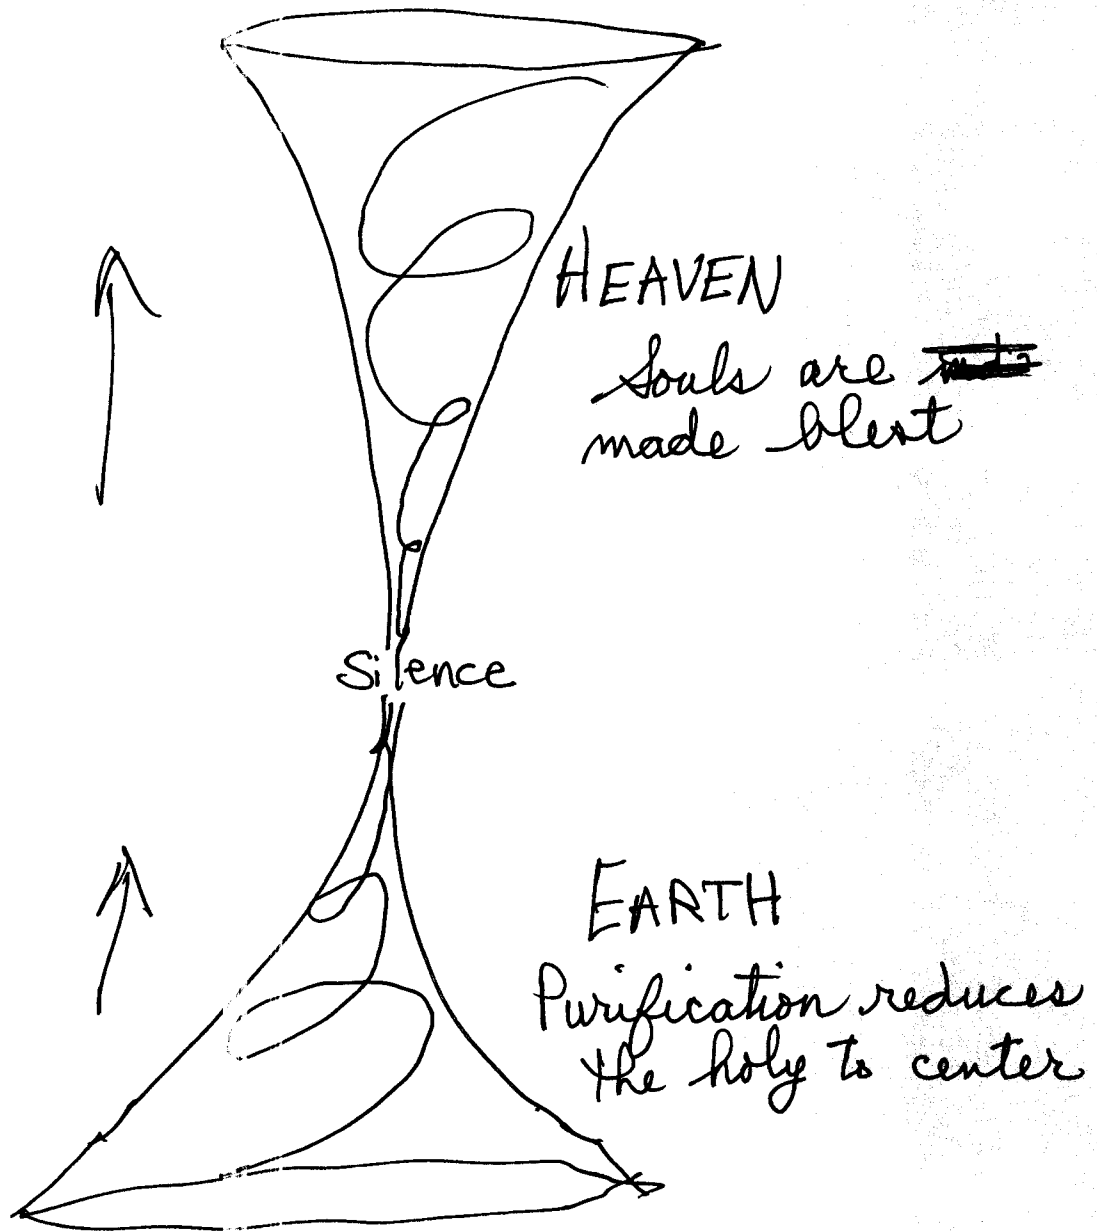 HEAVEN
Souls are
made blest
Silence
EARTH
Purification reduces
the holy to center